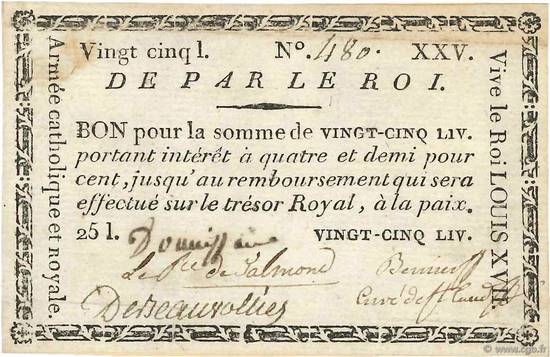 Vingt cinq l. N°. 480. XXV.
DE PAR LE ROI.
BON pour la somme de VINGT-CINQ LIV.
portant intérêt à quatre et demi pour
cent, jusqu'au remboursement qui sera
effectué sur le trésor Royal, à la paix.
25 l. VINGT-CINQ LIV.
Donnissan
Le Pce de Talmond Bernier
Desessarts
Curé de St Laud
Armée catholique et Royale.
Vive le Roi LOUIS XVII.
© www.cgb.fr